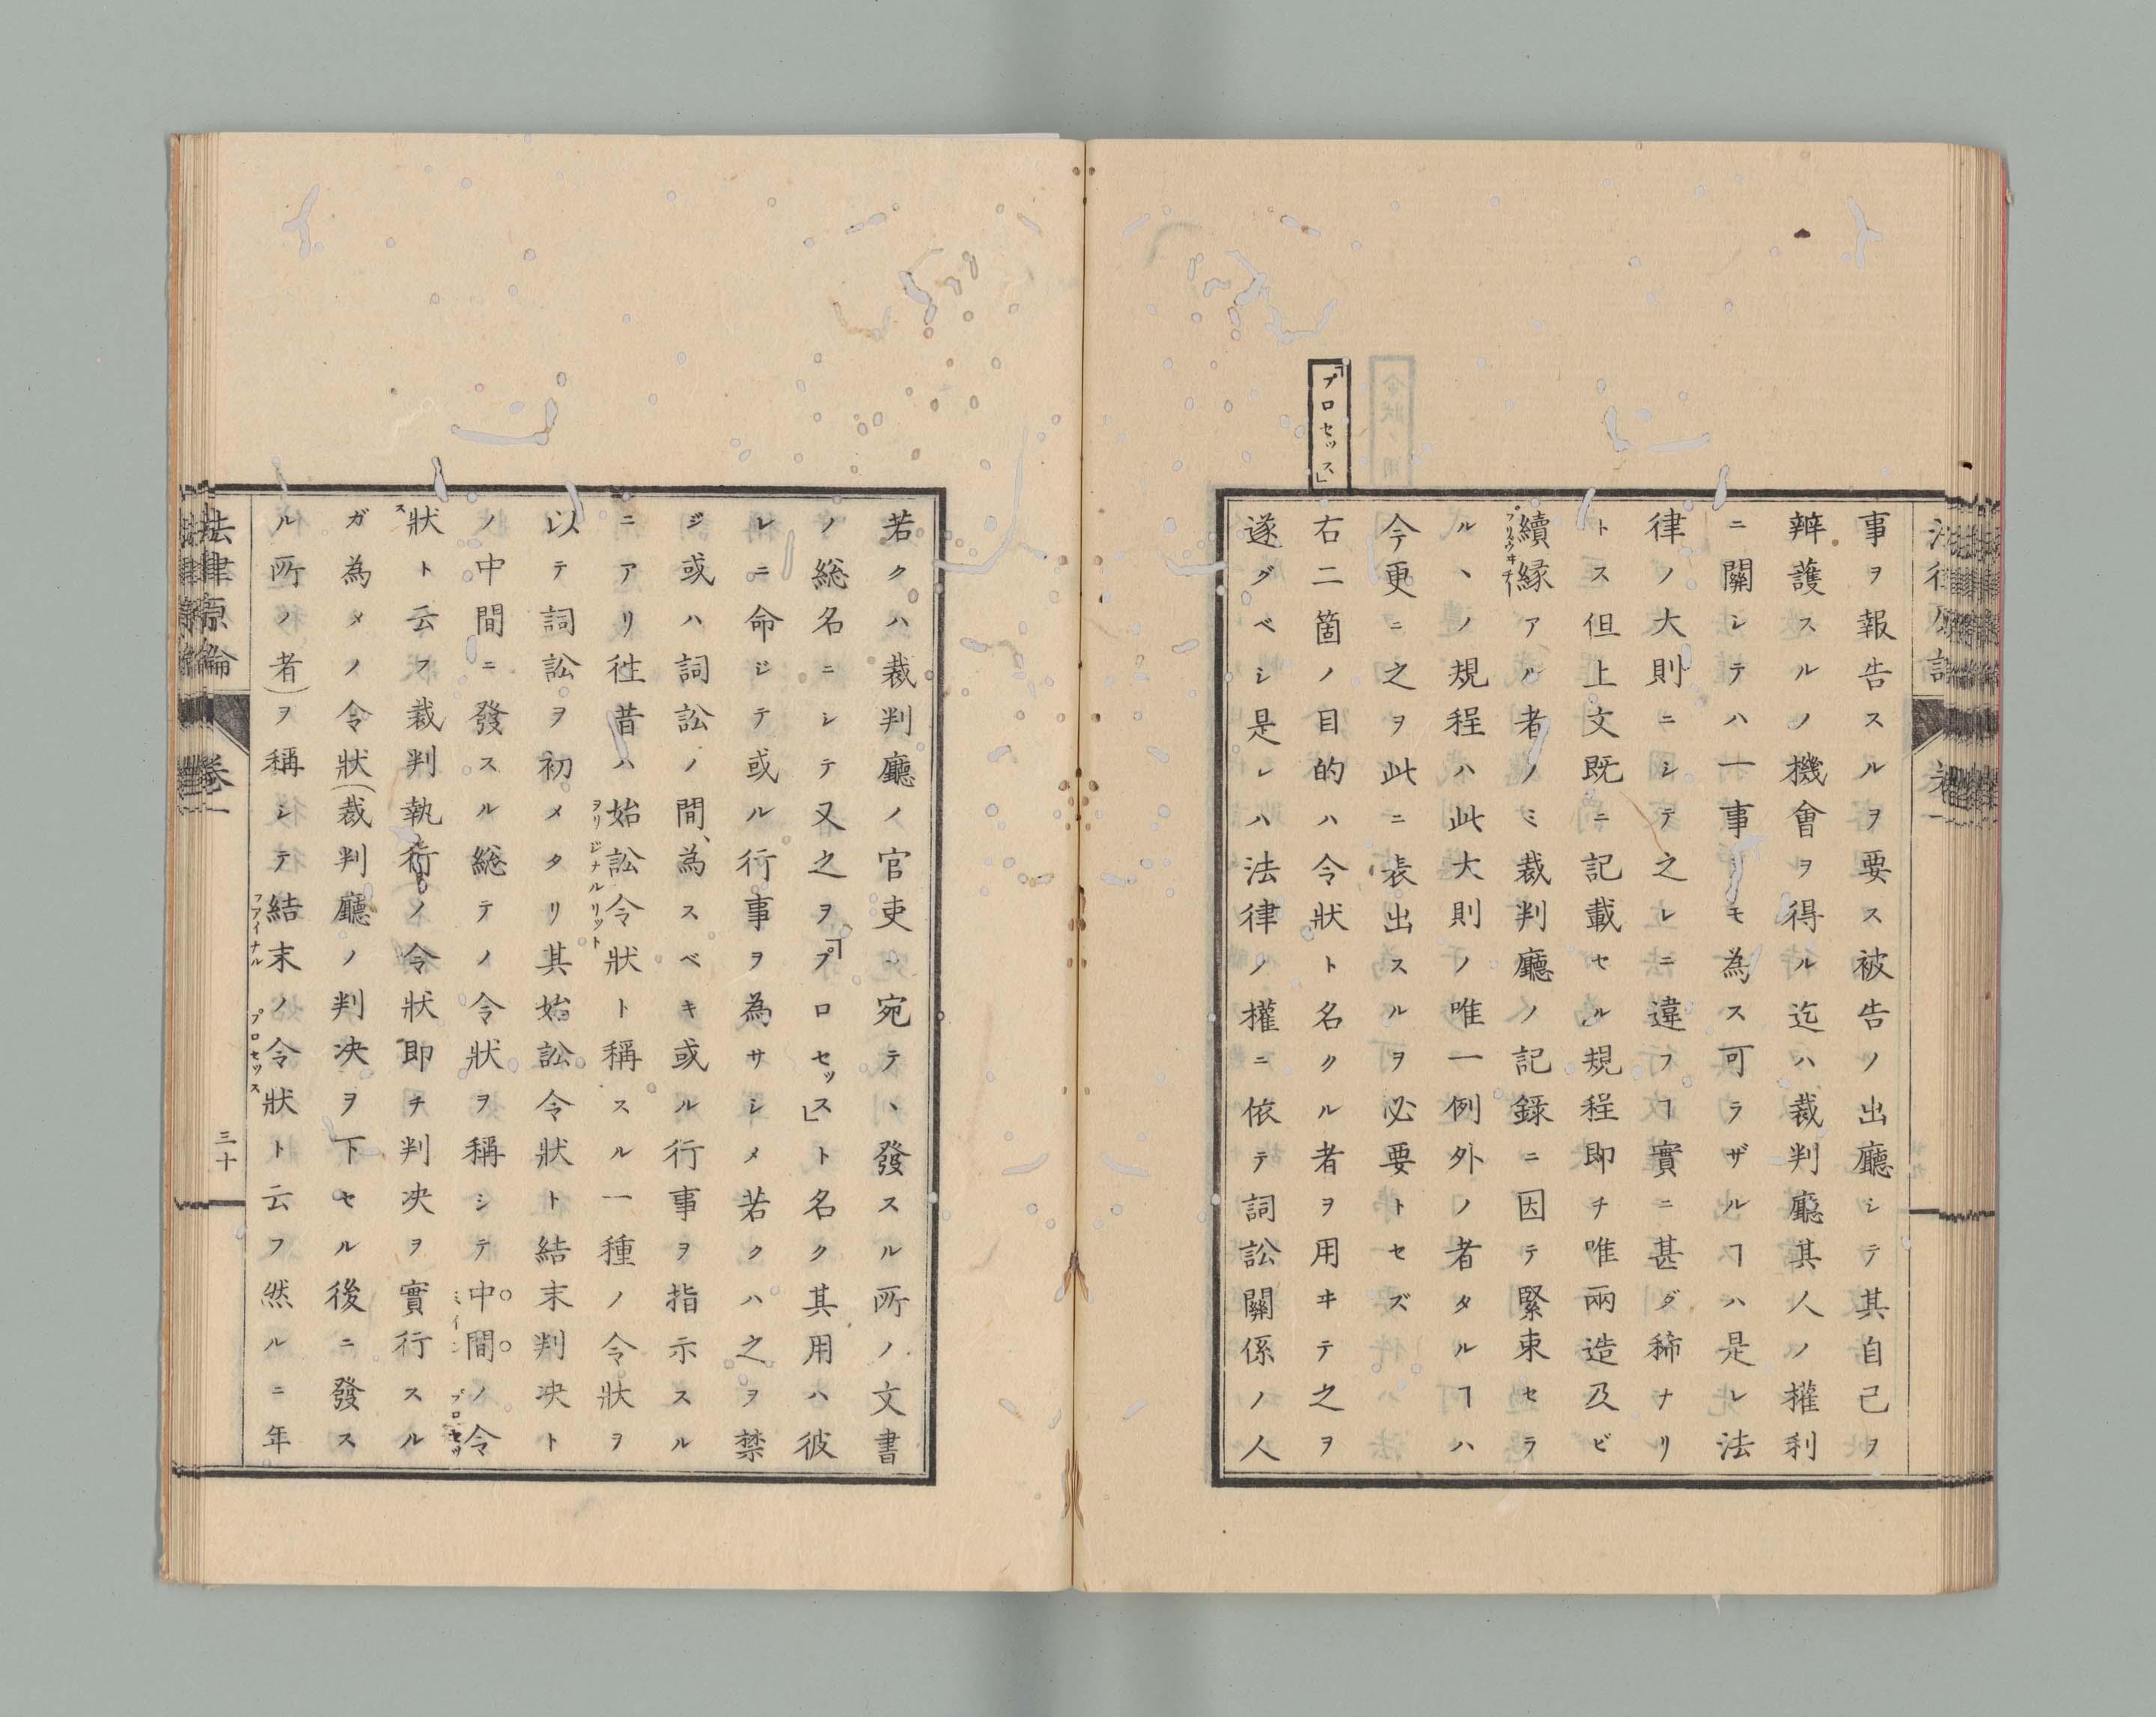 事ヲ報告スルヲ要ス被告ノ出廳シテ其自己ヲ
辨護スルノ機會ヲ得ル迄ハ裁判廳其人ノ權利
ニ關シテハ一事モ為ス可ラザルヿハ是レ法
律ノ大則ニシテ之レニ違フヿ實ニ甚ダ稀ナリ
トス但上文既ニ記載セル規程即チ唯兩造及ビ
續縁アル者ノミ裁判廳ノ記録ニ因テ緊束セラ
プリウヰチー
ルヽノ規程ハ此大則ノ唯一例外ノ者タルヿハ
今更ニ之ヲ此ニ表出スルヲ必要トセズ
「プロセッス」
右二箇ノ目的ハ令狀ト名クル者ヲ用ヰテ之ヲ
遂グベシ是レハ法律ノ權ニ依テ詞訟關係ノ人
若クハ裁判廳ノ官吏ヘ宛テヽ發スル所ノ文書
ノ総名ニシテ又之ヲ「プロセッス」ト名ク其用ハ彼
レニ命ジテ或ル行事ヲ為サシメ若クハ之ヲ禁
ジ或ハ詞訟ノ間、為スベキ或ル行事ヲ指示スル
ニアリ徃昔ハ始訟令狀ト稱スル一種ノ令狀ヲ
ヲリジナルリット
以テ詞訟ヲ初メタリ其始訟令狀ト結末判决ト
ノ中間ニ發スル総テノ令狀ヲ稱シテ中間ノ令
ミイン プロセッ
狀ト云フ裁判執行ノ令狀即チ判决ヲ實行スル
ス
ガ為メノ令狀(裁判廳ノ判决ヲ下セル後ニ發ス
ル所ノ者)ヲ稱シテ結末ノ令狀ト云フ然ルニ年
フアイナル プロセッス
法律原論 卷一 三十